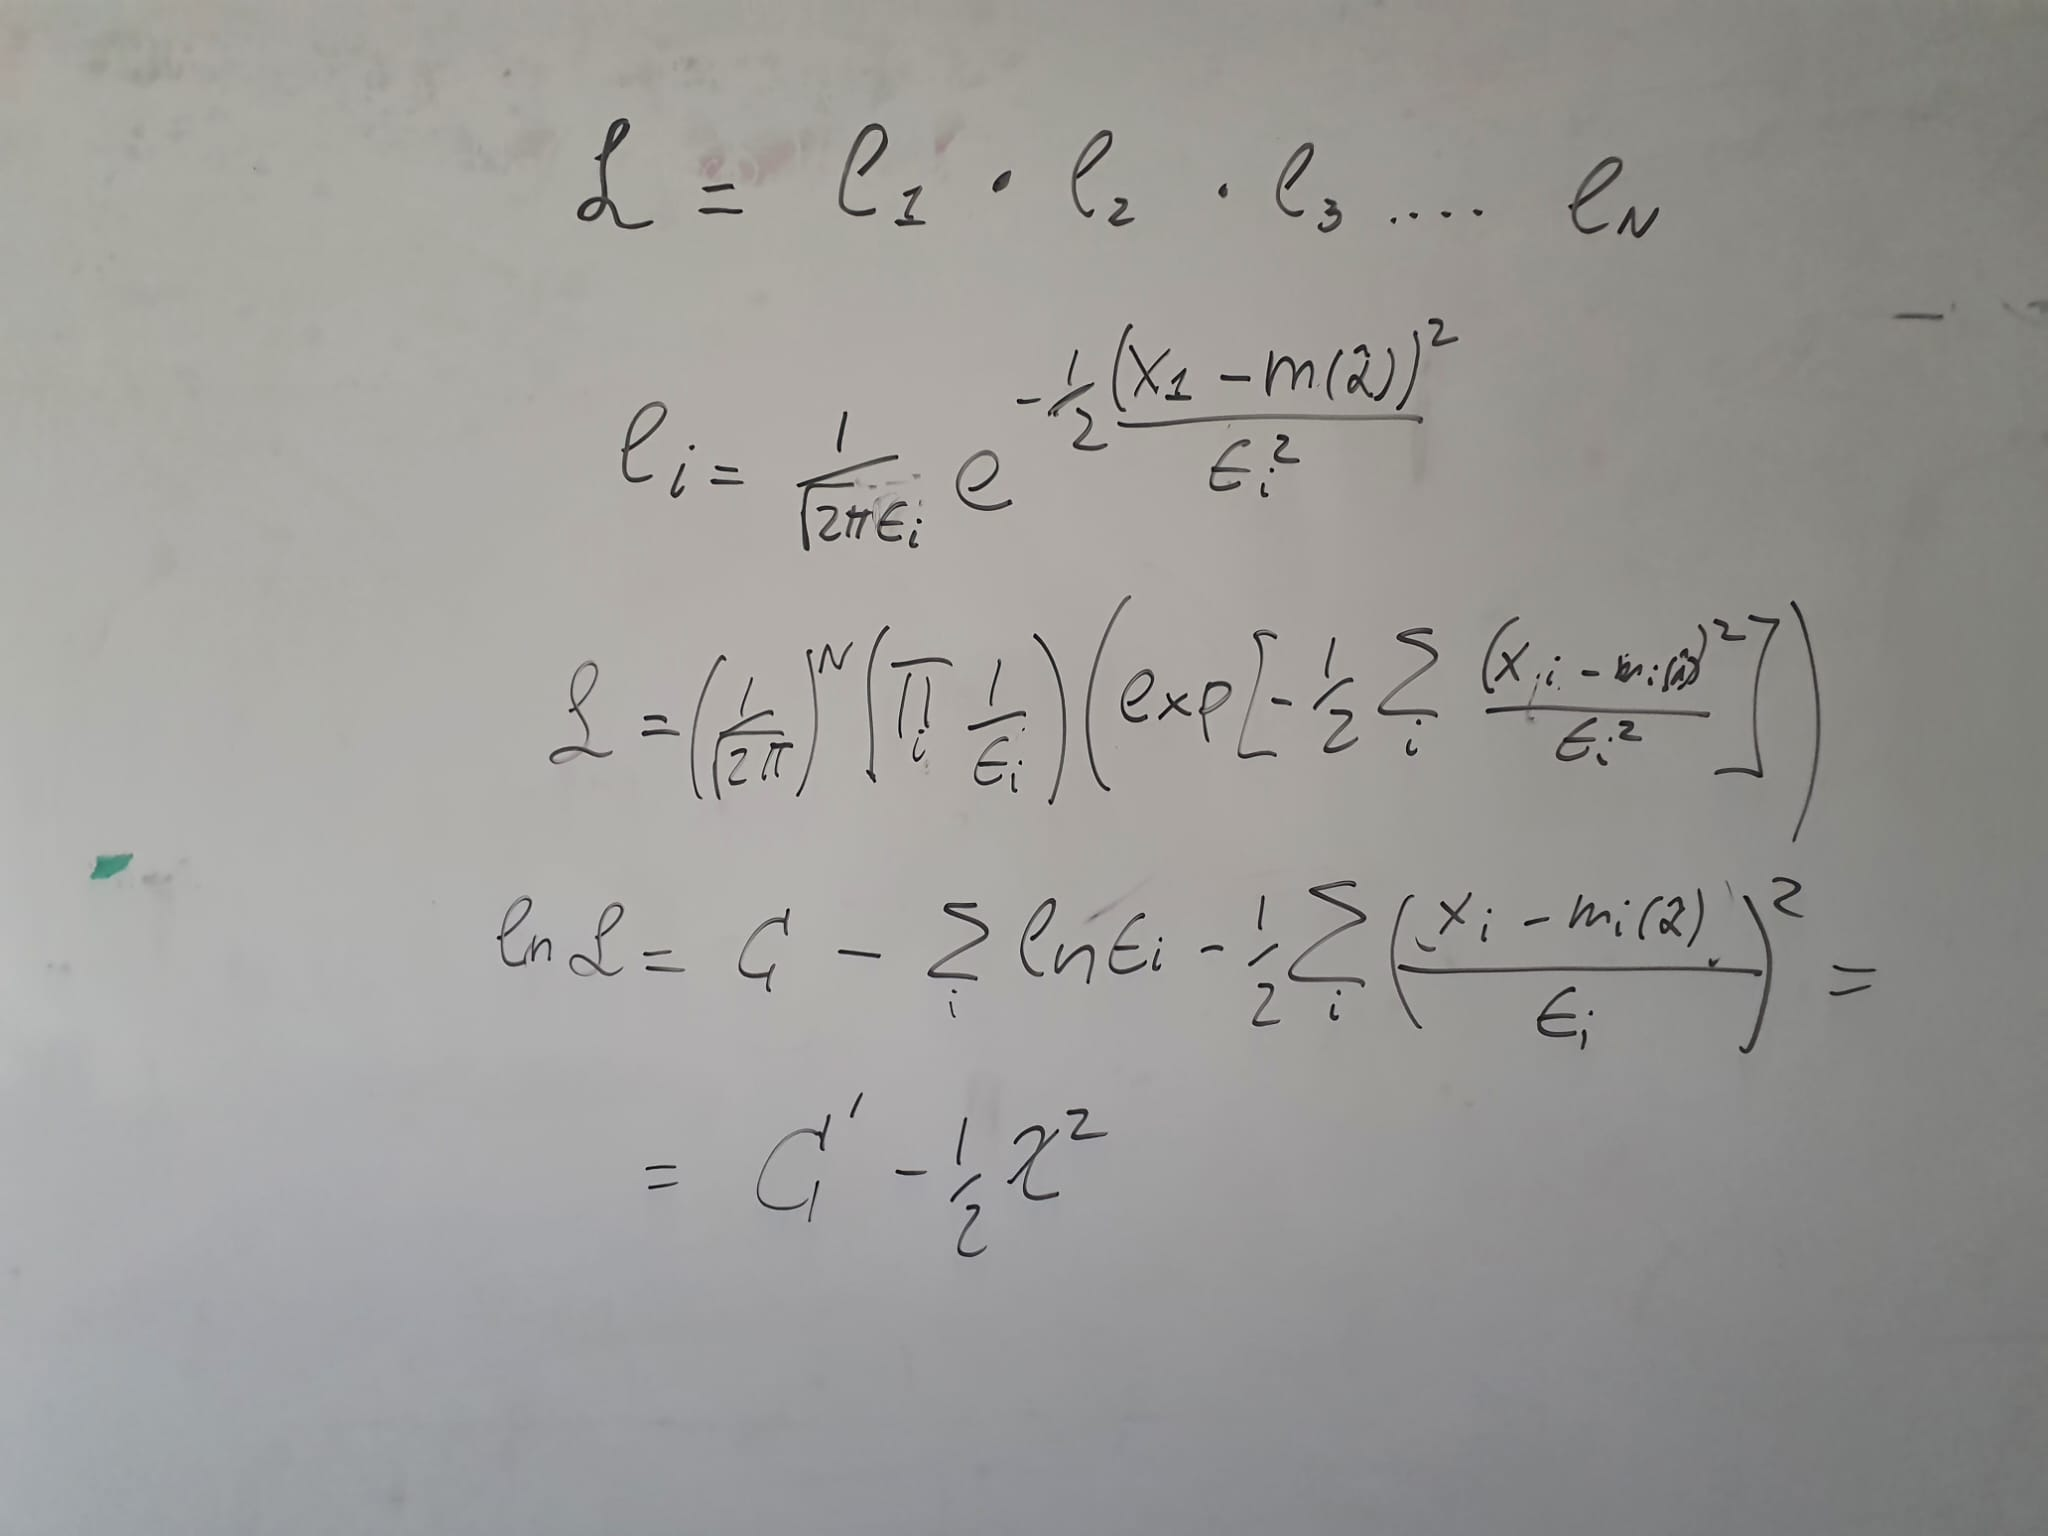 ℒ = ℓ₁ · ℓ₂ · ℓ₃ .... ℓ_N
ℓᵢ = 1/√(2πϵᵢ) e^(-1/2 (x₁ - m(2̂))²/ϵᵢ²)
ℒ = (1/√(2π))^N (∏ᵢ 1/ϵᵢ) (exp[-1/2 ∑ᵢ (xᵢ - mᵢ(2̂))²/ϵᵢ²])
ln ℒ = C - ∑ᵢ ln ϵᵢ - 1/2 ∑ᵢ ((xᵢ - mᵢ(2̂))/ϵᵢ)² =
= C' - 1/2 χ²